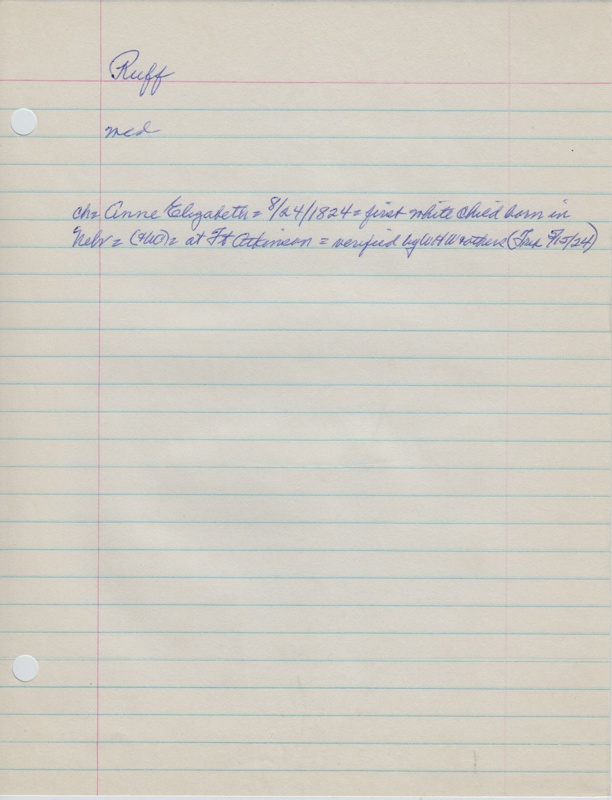 Ruff
med
ch= Anne Elizabeth = 8/24/1824 = first white child born in
Nebr = = at Ft Atkinson = verified by WH